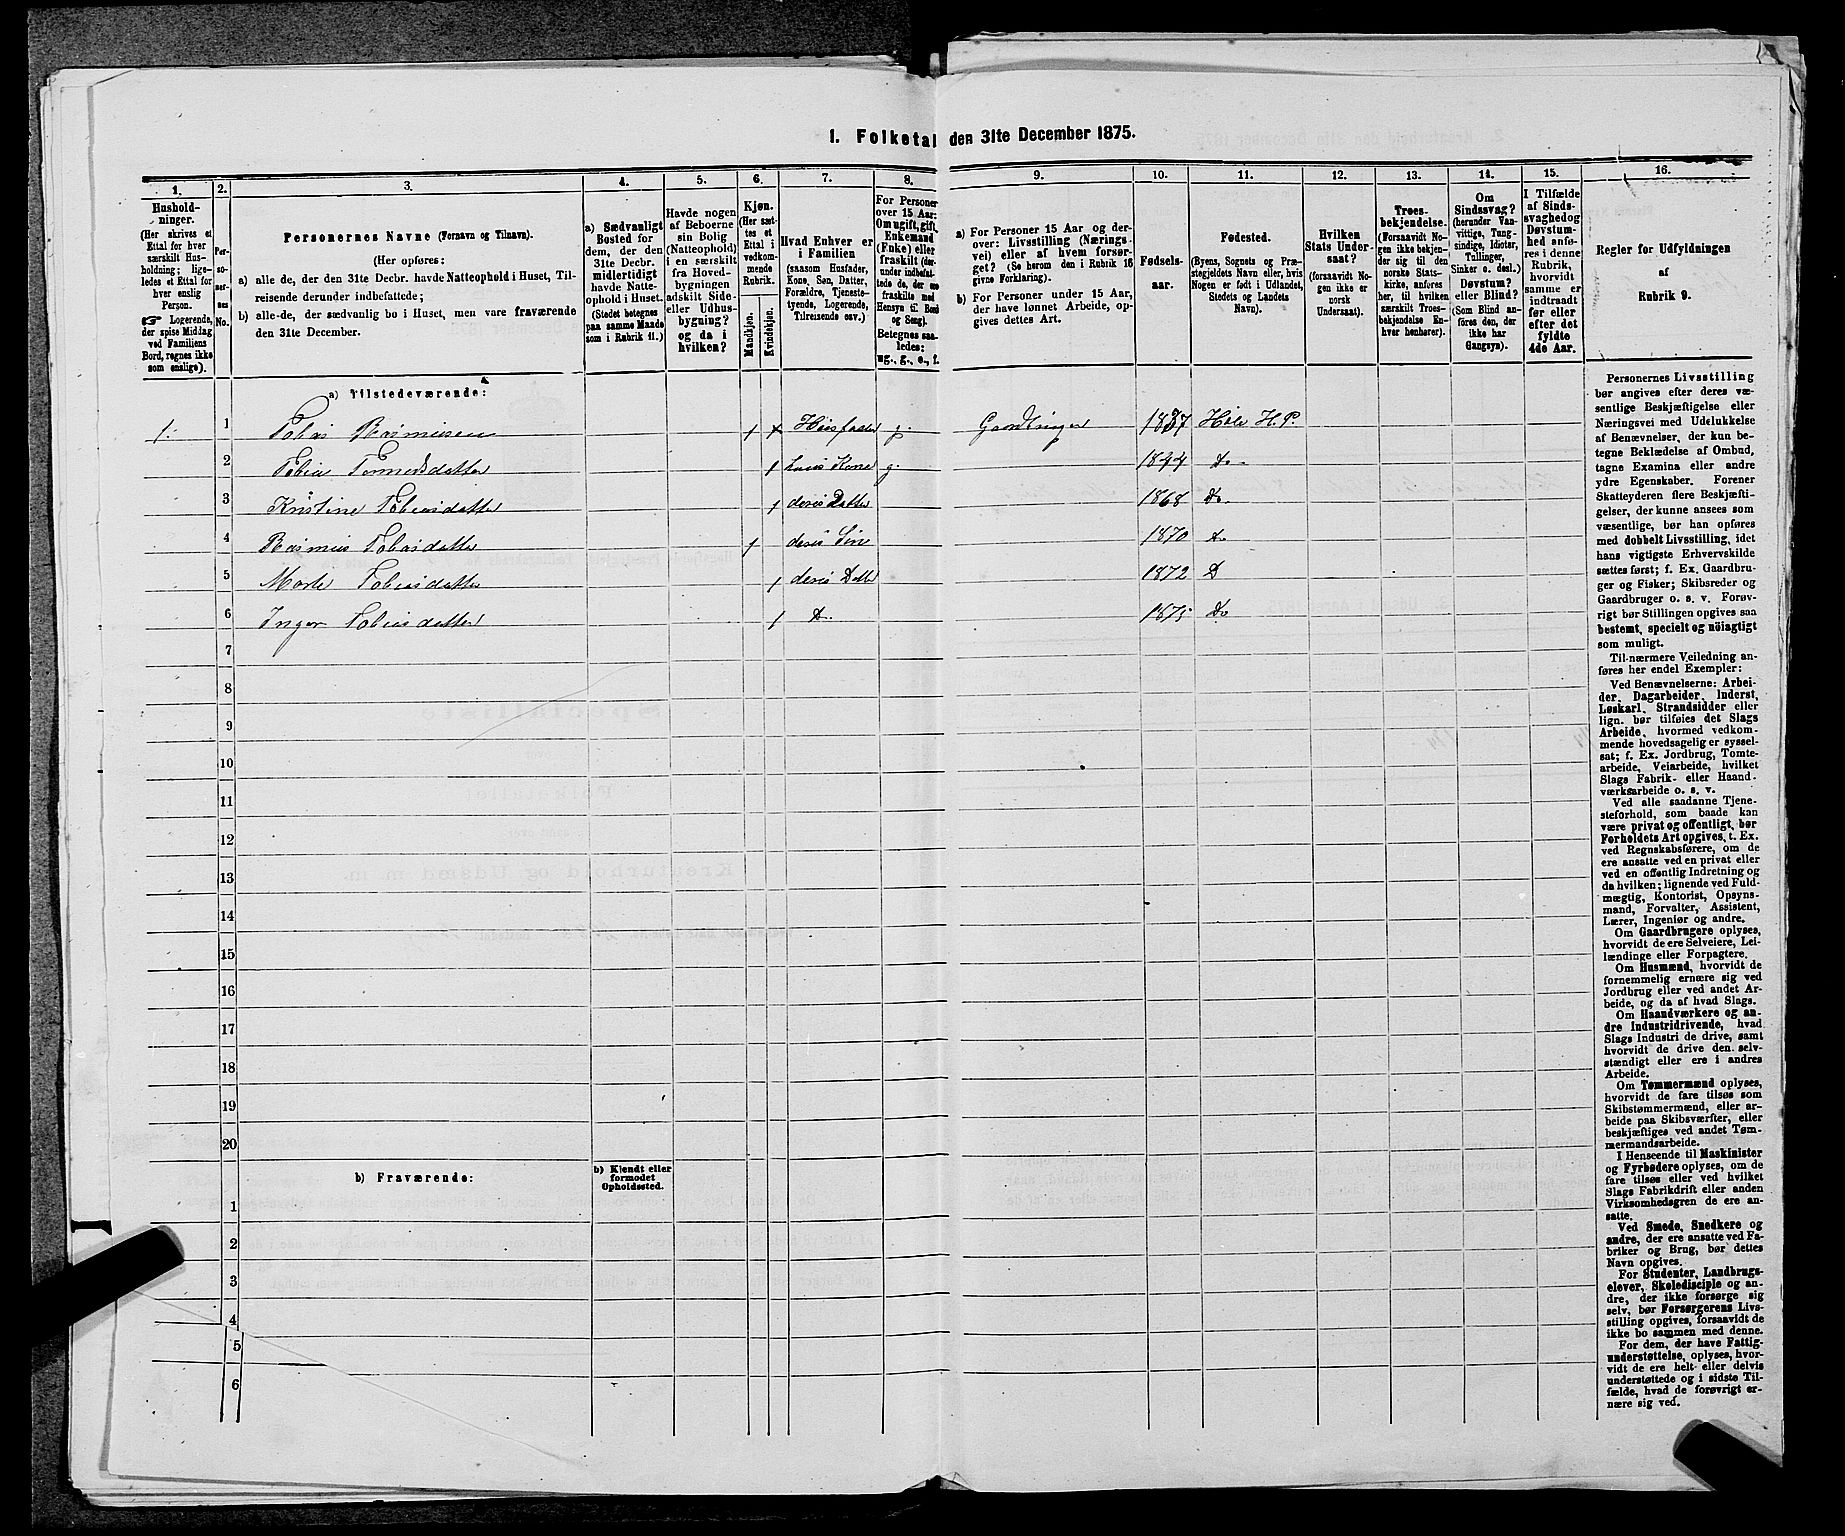 1. Folketal den 31te December 1875.
1.
2.
3.
4.
5.
6.
7.
8.
9.
10.
11.
12.
13.
14.
15.
16.
Hushold-
ninger.
(Her skrives et
Ettal for hver
særskilt Hus-
holdning; lige-
ledes et Ettal for
hver enslig
Person.
☞ Logerende,
der spise Middag
ved Familiens
Bord, regnes ikke
som enslige).
Per-
so-
ner-
nes
No.
Personernes Navne (Fornavn og Tilnavn).
(Her opføres:
a) alle de, der den 31te Decbr. havde Natteophold i Huset, Til-
reisende derunder indbefattede;
b) alle de, der sædvanlig bo i Huset, men vare fraværende
den 31te December.
a) Sædvanligt
Bosted for
dem, der den
31te Decbr.
midlertidigt
havde Natte-
ophold i Huset.
(Stedet betegnes
paa samme Maade
som i Rubrik 11.)
Havde nogen
af Beboerne
sin Bolig
(Natteophold)
i en særskilt
fra Hoved-
bygningen
adskilt Side-
eller Udhus-
bygning?
og da i
hvilken?
Kjøn.
(Her sæt-
tes et
Ettal i
vedkom-
mende
Rubrik.
Mandkjøn.
Kvindekjøn.
Hvad Enhver er
i Familien
(saasom Husfader,
Kone, Søn, Datter,
Forældre, Tjeneste-
tyende, Logerende,
Tilreisende osv.)
For Personer
over 15 Aar:
Om ugift, gift,
Enkemand
(Enke) eller
fraskilt (der-
under indbefat-
tede de, der ere
fraskilte med
Hensyn til Bord
og Seng).
Betegnes saa-
ledes:
ug., g., e., f.
a) For Personer 15 Aar og der-
over: Livsstilling (Nærings-
vei) eller af hvem forsør-
get? (Se herom den i Rubrik 16
givne Forklaring).
b) For Personer under 15 Aar,
der have lønnet Arbeide, op-
gives dettes Art.
Fødsels-
aar.
Fødested.
(Byens, Sognets og Præ-
stegjeldets Navn eller, hvis
Nogen er født i Udlandet,
Stedets og Landets
Navn).
Hvilken
Stats Under-
saat?
(forsaavidt No-
gen ikke er
norsk
Undersaat).
Troes-
bekjendelse.
(Forsaavidt No-
gen ikke bekjen-
der sig til den
norske Stats-
kirke, anføres
her, til hvilken
særskilt Troes-
bekjendelse En-
hver henhører).
Om
Sindssvag?
(herunder Van-
vittige, Tung-
sindige, Idioter,
Tullinger,
Sinker o. desl.)
Døvstum?
eller Blind?
(Som Blind an-
føres den, der
ikke har
Gangsyn).
I Tilfælde
af Sinds-
svaghed og
Døvstum-
hed anfø-
res i denne
Rubrik,
hvorvidt
samme er
indtraadt
før eller
efter det
fyldte
4de Aar.
Regler for Udfyldningen
af
Rubrik 9.
a) Tilstedeværende:
1. 1 Tobias Rasmusen 1 Huusfader g. Gaardbruger 1837 Hole H. P.
2 Tomasdatter 1 hans Kone g. 1844 Do
3 Kristine Tobiasdatter 1 deres Datter 1868 Do
4 Rasmus Tobiasdatter 1 deres Søn 1870 Do
5 Marte Tobiasdatter 1 deres Datter 1872 D
6 Inger Tobiasdatter 1 Do. 1875 Do
7
8
9
10
11
12
13
14
15
16
17
18
19
20
b) Fraværende:
b) Kjendt eller
formodet
Opholdssted.
1
2
3
4
5
6
Personernes Livsstilling
bør angives efter deres væ-
sentlige Beskjæftigelse eller
Næringsvei med Udelukkelse
af Benævnelser, der kun be-
tegne Beklædelse af Ombud,
tagne Examina eller andre
ydre Egenskaber. Forener
Skatteyderen flere Beskjæfti-
gelser, der kunne ansees som
væsentlige, bør han opføres
med dobbelt Livsstilling, idet
hans vigtigste Erhvervskilde
sættes først; f. Ex. Gaardbru-
ger og Fisker; Skibsreder og
Gaardbruger o. s. v. Forøv-
rigt bør Stillingen opgives saa
bestemt, specielt og nöiagtigt
som muligt.
Til nærmere Veiledning an-
føres her endel Exempler:
Ved Benævnelserne: Arbei-
der, Dagarbeider, Inderst,
Løskarl, Strandsidder eller
lign. bør tilføies det Slags
Arbeide, hvormed vedkom-
mende hovedsagelig er syssel-
sat; f. Ex. Jordbrug, Tomte-
arbeide, Veiarbeide, hvilket
Slags Fabrik- eller Haand-
værksarbeide o. s. v.
Ved alle saadanne Tjene-
steforhold, som baade kan
være privat og offentligt, bør
Forholdets Art opgives, t. Ex.
ved Regnskabsførere, om de
ere ansatte ved en privat eller
ved en offentlig Indretning og
da hvilken; lignende ved Fuld-
mægtig, Kontorist, Opsyns-
mand, Forvalter, Assistent,
Lærer, Ingeniør og andre.
Om Gaardbrugere oplyses,
hvorvidt de ere Selveiere, Lei-
lændinge eller Forpagtere.
Om Husmænd, hvorvidt de
fornemmelig ernære sig ved
Jordbrug eller ved andet Ar-
beide, og da af hvad Slags.
Om Haandværkere og an-
dre Industridrivende, hvad
Slags Industri de drive, samt
hvorvidt de drive den selv-
stændigt eller ere i andres
Arbeide.
Om Tømmermænd oplyses,
hvorvidt de fare tilsøs som
Skibstømmermænd, eller ar-
beide paa Skibsværfter, eller
beskjæftiges ved andet Tøm-
mermandsarbeide.
I Henseende til Maskinister
og Fyrbødere oplyses, om de
fare tilsøs eller ved hvilket
Slags Fabrikdrift eller anden
Virksomhedsgren de ere an-
satte.
Ved Smede, Snedkere og
andre, der ere ansatte ved Fa-
briker og Brug, bør dettes
Navn opgives.
For Studenter, Landbrugs-
elever, Skoledisciple og an-
dre, der ikke forsørge sig
selv, bør Forsørgerens Livs-
stilling opgives, forsaavidt de
ikke bo sammen med denne.
For dem, der have Fattig-
understøttelse, oplyses, hvor-
vidt de ere helt- eller delvis
understøttede og i sidste Til-
fælde, hvad de forøvrigt er-
nære sig ved.